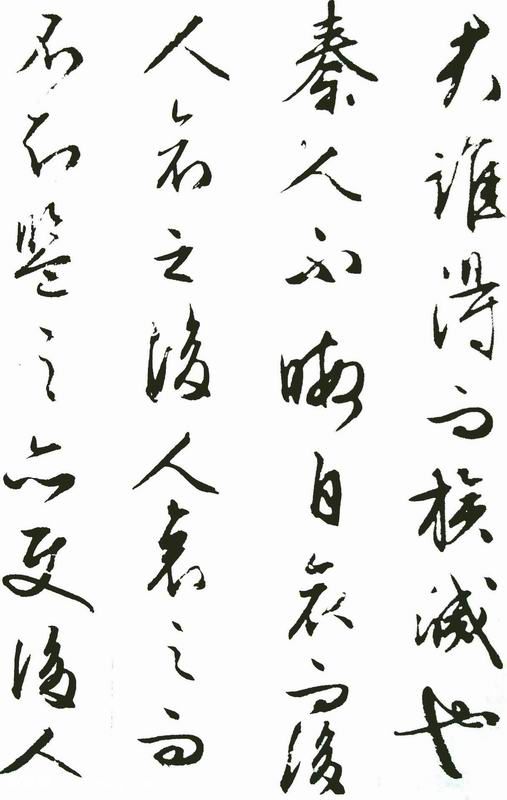 夫誰得而族滅也
秦人不暇自哀而後
人哀之後人哀之而
不監之亦使後人